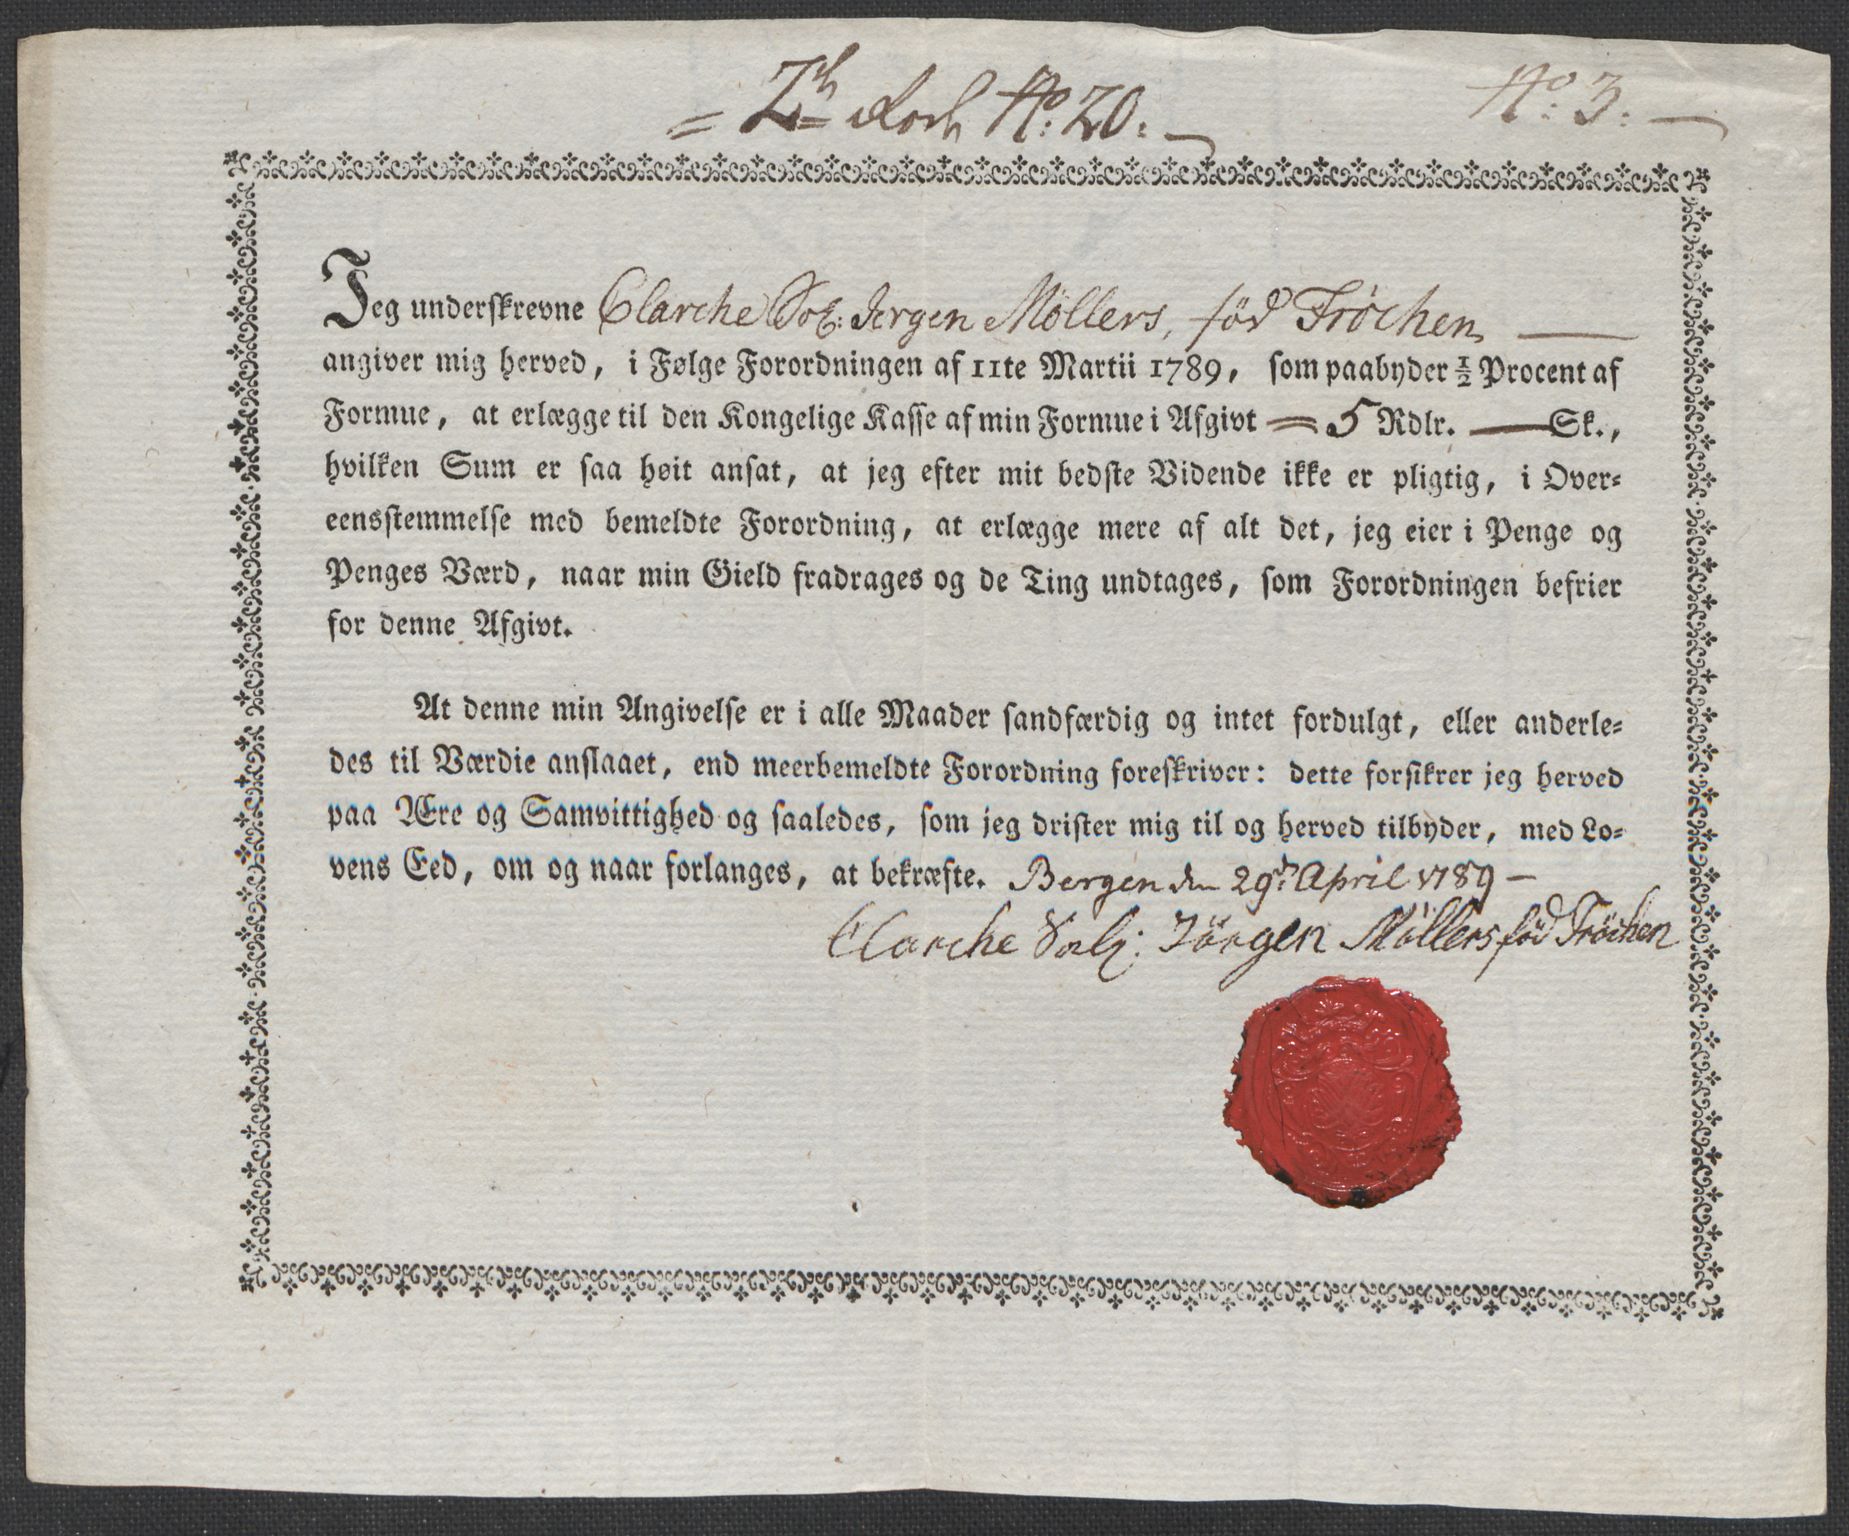 = 2h Rode No: 20. —
No: 3: —
Jeg underskrevne Clarche Sal: Jergen Møllers, fød Frøchen —
angiver mig herved, i Følge Forordningen af 11te Martii 1789, som paabyder ½ Procent af
Formue, at erlægge til den Kongelige Kasse af min Formue i Afgivt = 5 Rdlr. — Sk.,
hvilken Sum er saa høit ansat, at jeg efter mit bedste Vidende ikke er pligtig, i Over-
eensstemmelse med bemeldte Forordning, at erlægge mere af alt det, jeg eier i Penge og
Penges Værd, naar min Gield fradrages og de Ting undtages, som Forordningen befrier
for denne Afgivt.
At denne min Angivelse er i alle Maader sandfærdig og intet fordulgt, eller anderle-
des til Værdie anslaaet, end meerbemeldte Forordning foreskriver: dette forsikrer jeg herved
paa Ære og Samvittighed og saaledes, som jeg drister mig til og herved tilbyder, med Lo-
vens Eed, om og naar forlanges, at bekræfte. Bergen den 29d: April 1789 —
Clarche Salg: Jörgen Möllers föd Fröchen